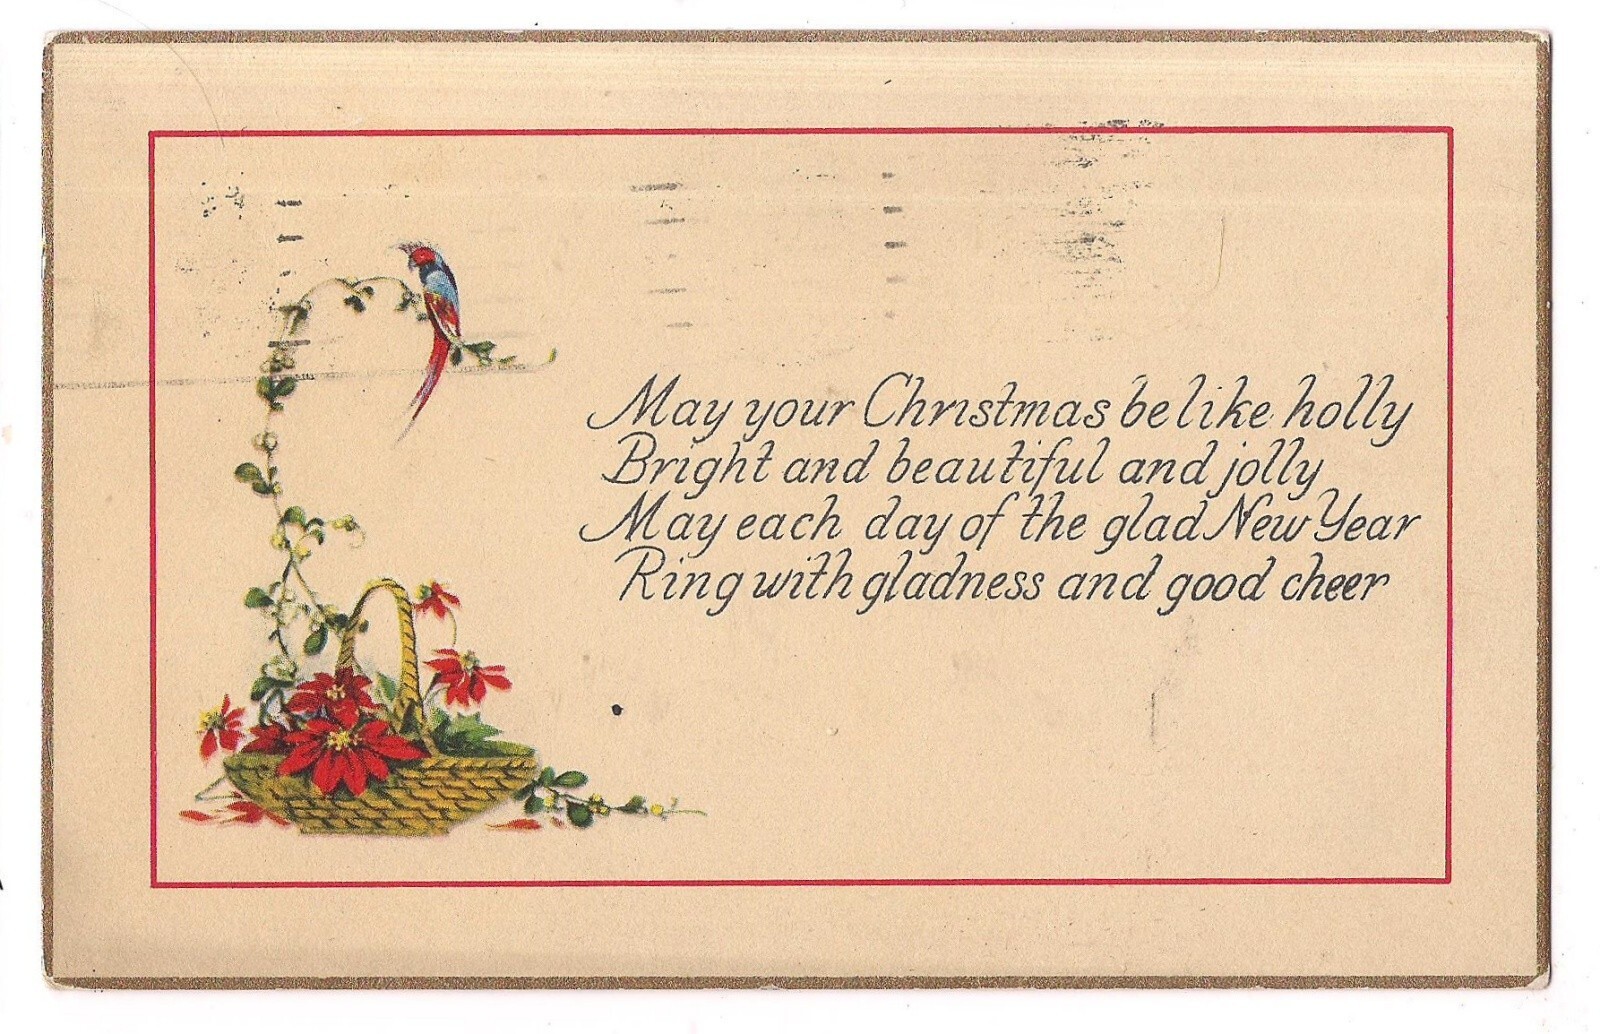 May your Christmas be like holly
Bright and beautiful and jolly
May each day of the glad New Year
Ring with gladness and good cheer